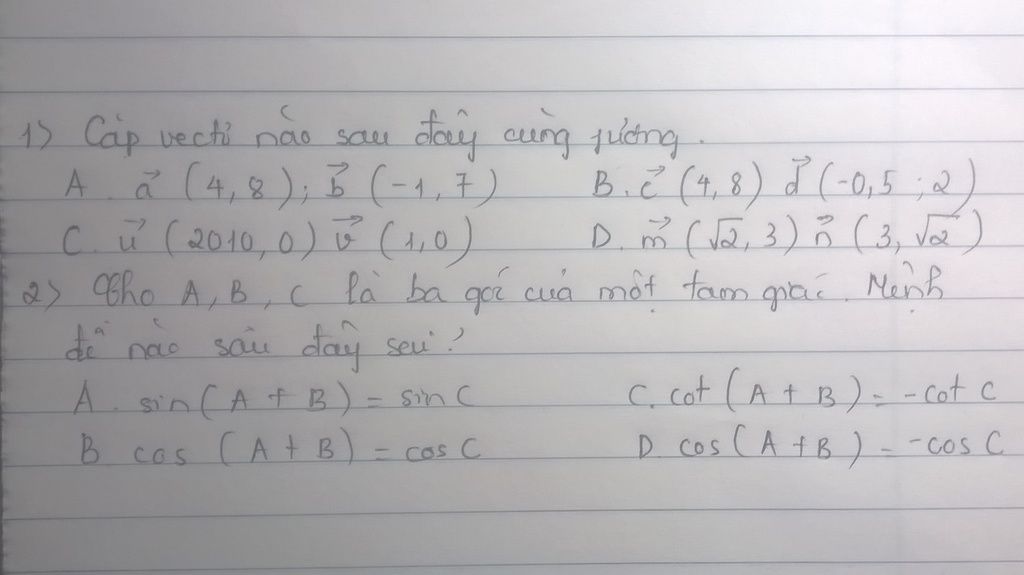 1) Cặp vectơ nào sau đây cùng phương.
A. a⃗ (4, 8); b⃗ (-1, 7) B. c⃗ (4, 8) d⃗ (-0,5 ; 2)
C. u⃗ (2010, 0) v⃗ (1, 0) D. m⃗ (√2, 3) n⃗ (3, √2)
2) Cho A, B, C là ba góc của một tam giác. Mệnh
đề nào sau đây sai?
A. sin(A + B) = sin C C. cot (A + B) = -cot C
B cos (A + B) = cos C D. cos(A + B) = -cos C